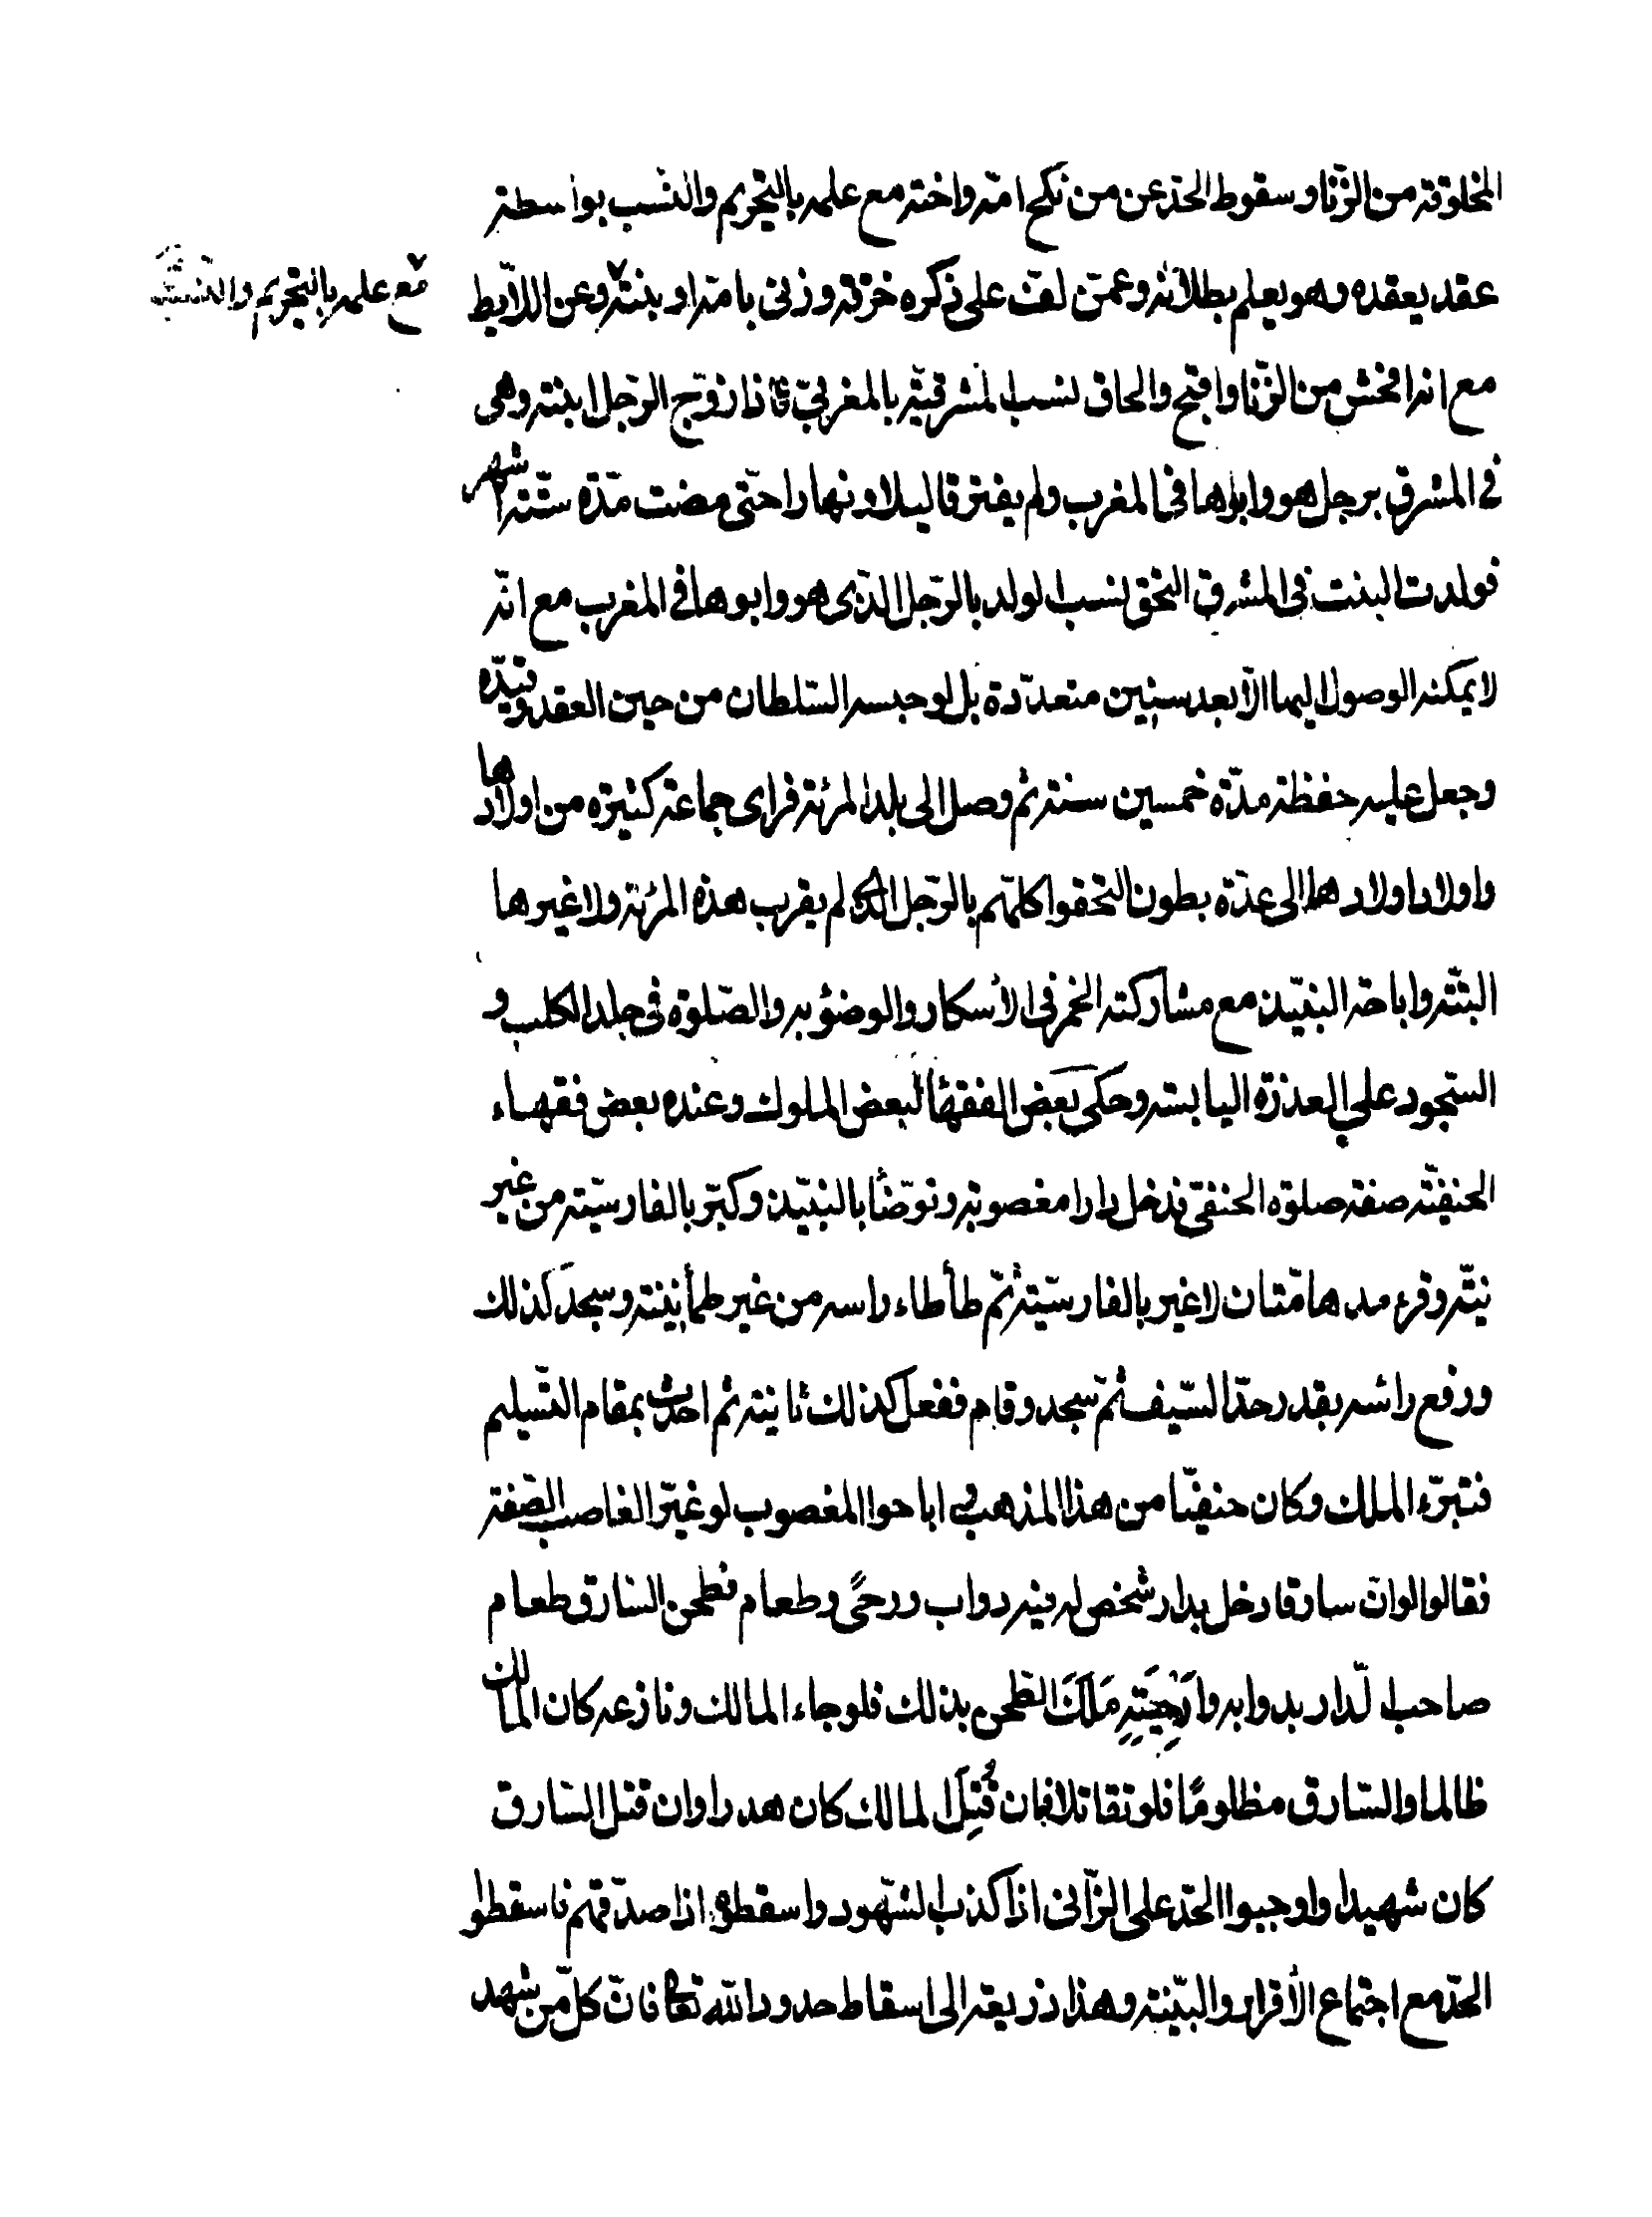 المخلوقة من الزّنا وسقوط الحدّ عن من نكح امّه واخته مع علمه بالتحريم والنّسب بواسطة
عقد يعقده وهو يعلم بطلانه وعمّن لفّ على ذكره خرقة وزنى بامّه او بنته وعن اللّايط
مع علمه بالتحريم والنّسب
مع انه افحش من الزّنا واقبح والحاق نسب المشرقيّة بالمغربيّ فاذا زوّج الرّجل ابنته وهى
فى المشرق برجل هو وابوها فى المغرب ولم يفترقا ليلا ونهارا حتّى مضت مدّة ستّة اشهر
فولدت البنت فى المشرق التحق نسب الولد بالرّجل الّذى هو وابوها فى المغرب مع انّه
لا يمكنه الوصول اليها الّا بعد سنين متعدّدة بل لو حبسه السّلطان من حين العقد وقيّده
وجعل عليه حفظة مدّة خمسين سنة ثم وصل الى بلد المرئة فراى جماعة كثيرة من اولادها
واولاد اولادها الى عدّة بطون التحقوا كلّهم بالرّجل الذى لم يقرب هذه المرئة ولا غيرها
البتّة واباحة النبيّذ مع مشاركته الخمر فى الأسكار والوضؤ به والصّلوة فى جلد الكلب و
السّجود على العذرة اليابسة وحكى بعض الفقهاء لبعض الملوك وعنده بعض فقهاء
الحنفيّة صفة صلوة الحنفىّ فدخل دارا مغصوبة وتوضّأ بالنبيّذ وكبّر بالفارسيّة من غير
نيّة وقرء مدهامّتان لا غير بالفارسيّة ثمّ طأطاء راسه من غير طمأنينة وسجد كذلك
ورفع رائسه بقدر حدّ السّيف ثمّ سجد وقام ففعل كذلك ثانية ثم احدث بمقام التّسليم
فتبرّء الملك وكان حنفيّا من هذا المذهب اباحوا المغصوب لو غيّر الغاصب الصّفة
فقالوا لو انّ سارقا دخل بدار شخص له فيه دواب ورحًى وطعام فطحن السّارق طعام
صاحب الدّار بدوابه وارحيته ملك الطّحن بذلك فلو جاء المالك ونازعه كان المالك
ظالما والسّارق مظلومًا فلو تقاتلا فان قُتِلَ المالك كان هدرا وان قتل السّارق
كان شهيدا واوجبوا الحدّ على الزّانى اذا كذب الشّهود واسقطوه اذا صدّقهم فاسقطوا
الحدّ مع اجتماع الأقرار والبيّنة وهذا ذريعة الى اسقاط حدود اللّه تعالى فانّ كلّ من شهد